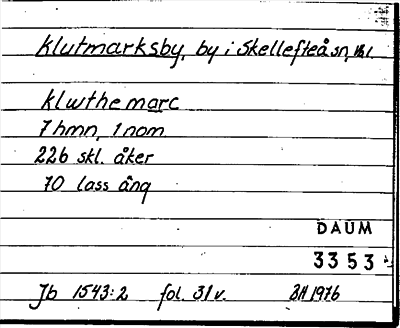 Klutmarksby, by i Skellefteå sn, Vbl.
Klwthemarc
7 hmn, 1 nom
226 skl. åker
70 lass äng
DAUM
3353
Jb 1543:2 fol. 31v. BH 1976